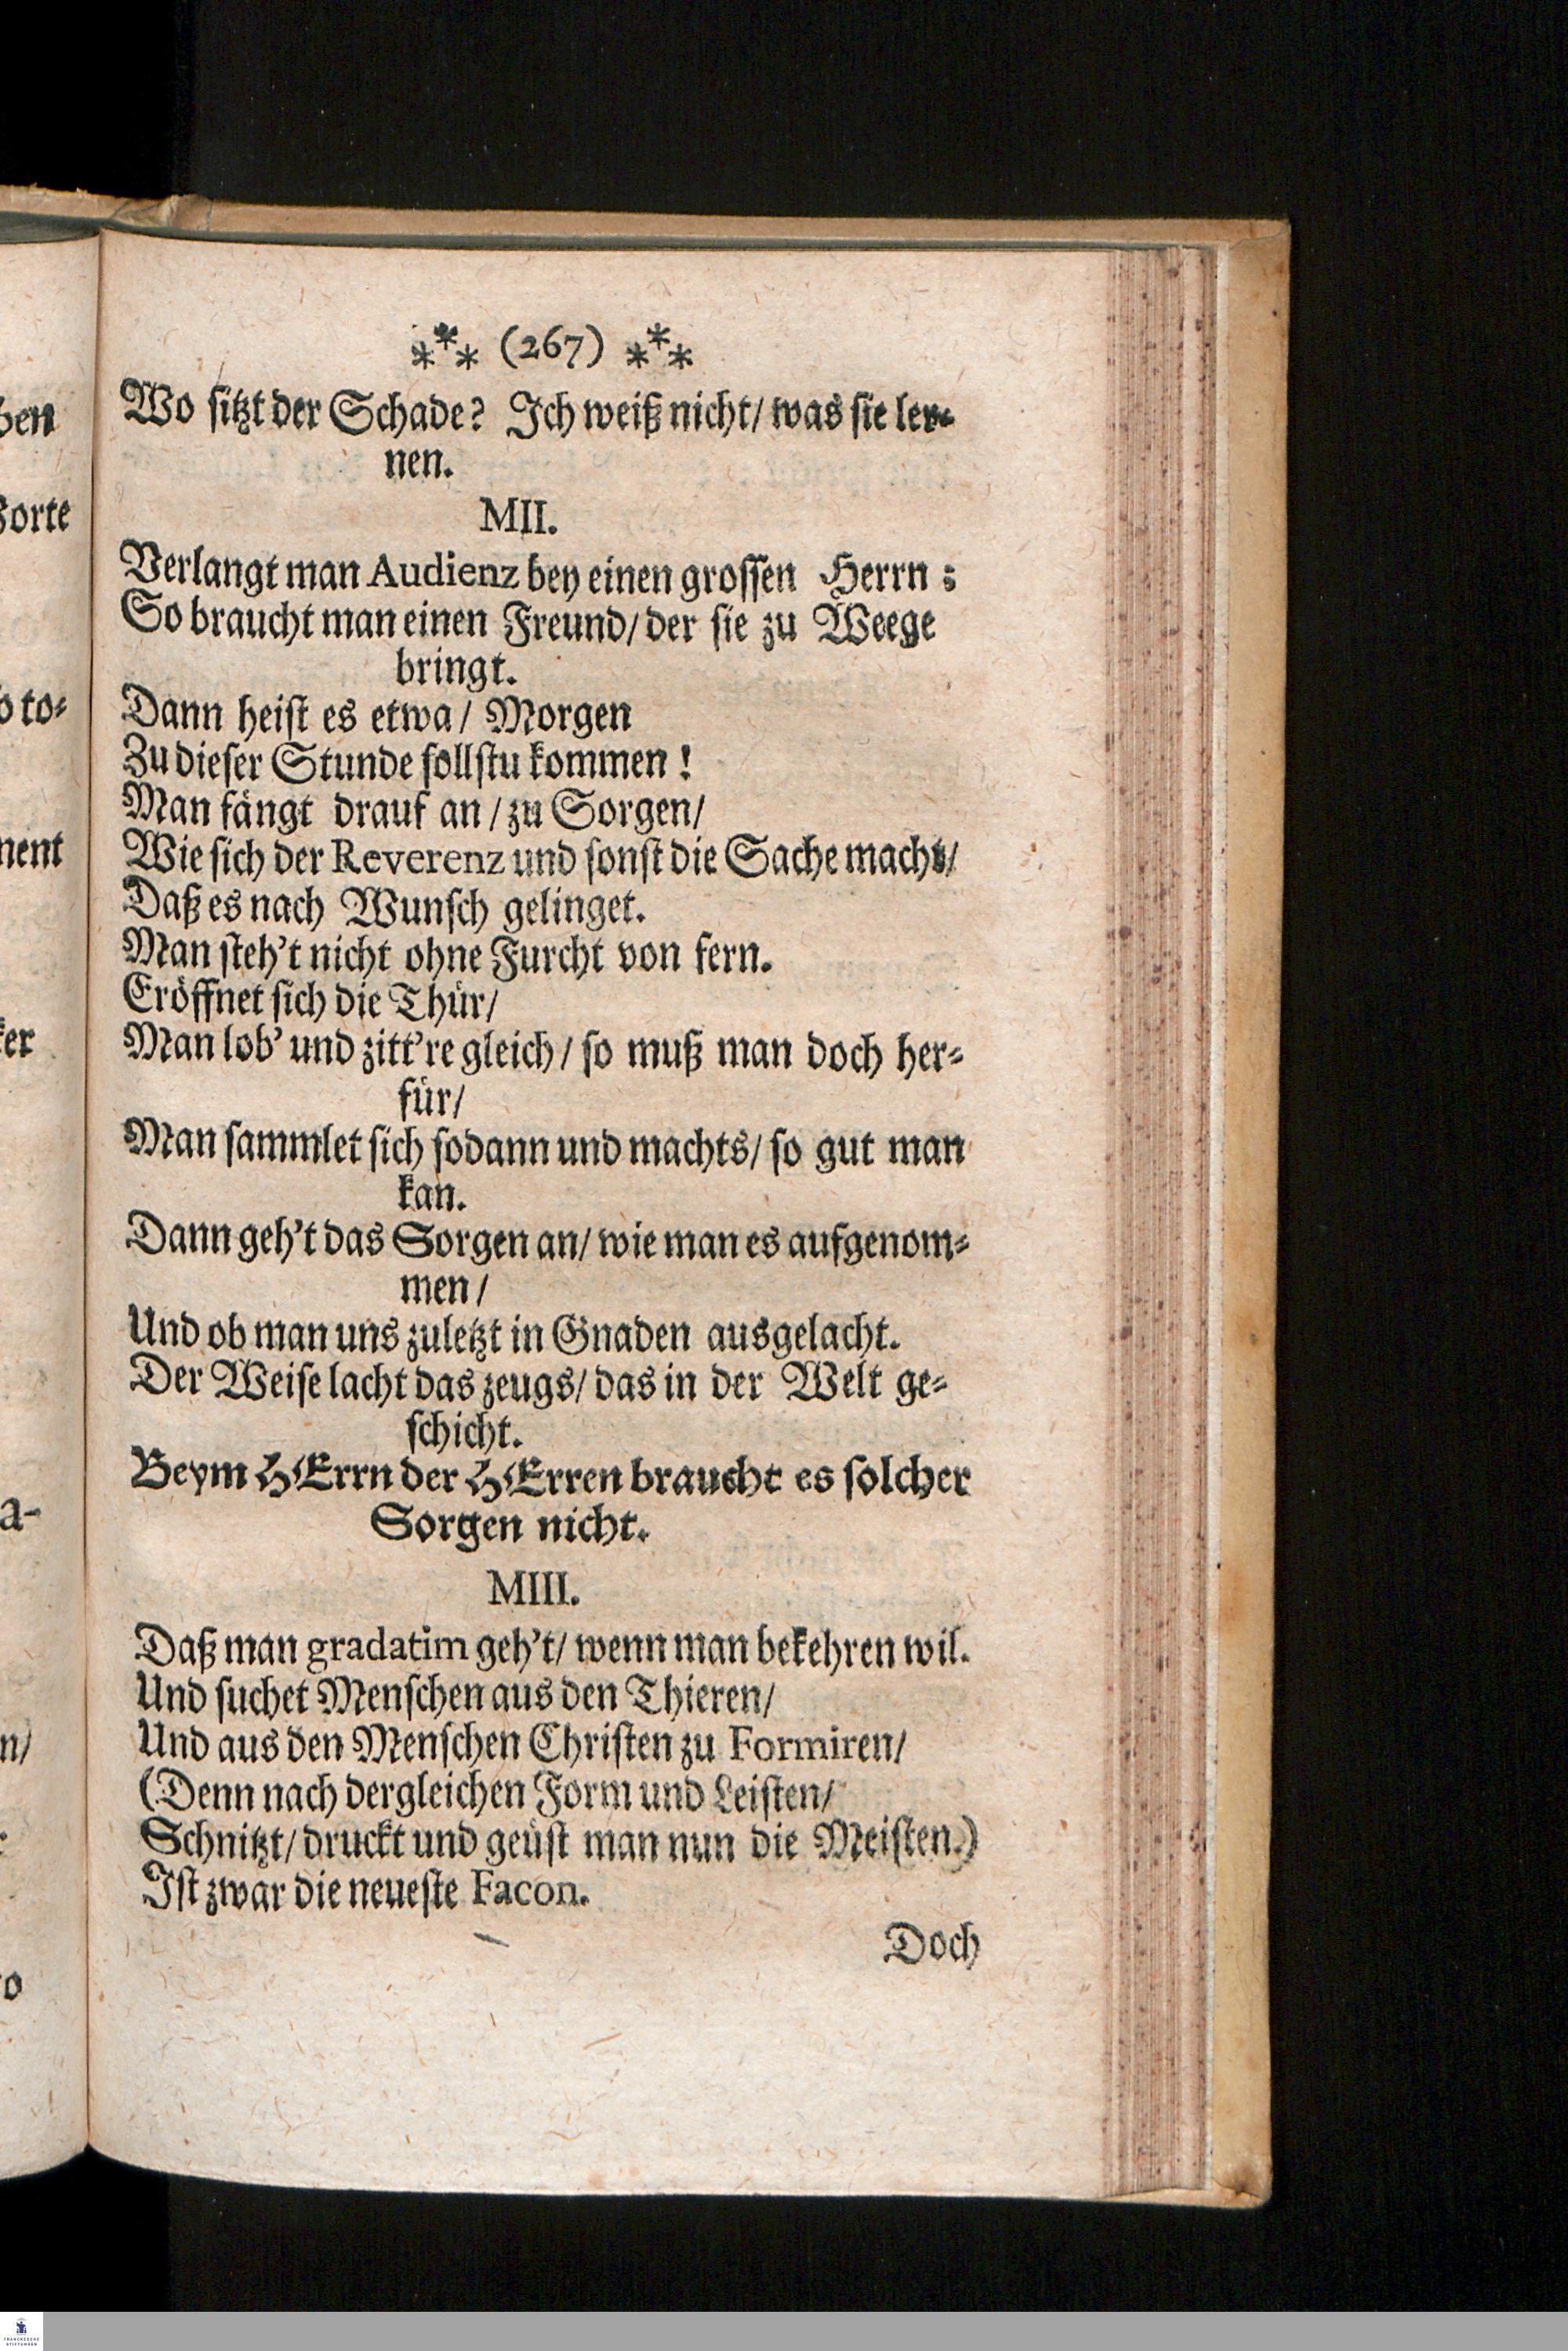 ⁂ (267) ⁂
Wo sitzt der Schade? Ich weiß nicht/ was sie ler-
nen.
MII.
Verlangt man Audienz bey einen grossen Herrn:
So braucht man einen Freund/ der sie zu Weege
bringt.
Dann heist es etwa/ Morgen
Zu dieser Stunde sollstu kommen!
Man fängt drauf an/ zu Sorgen/
Wie sich der Reverenz und sonst die Sache macht/
Daß es nach Wunsch gelinget.
Man steh't nicht ohne Furcht von fern.
Eröffnet sich die Thür/
Man lob' und zitt're gleich/ so muß man doch her-
für/
Man sammlet sich sodann und machts/ so gut man
kan.
Dann geh't das Sorgen an/ wie man es aufgenom-
men/
Und ob man uns zuletzt in Gnaden ausgelacht.
Der Weise lacht das zeugs/ das in der Welt ge-
schicht.
Beym HErrn der HErren braucht es solcher
Sorgen nicht.
MIII.
Daß man gradatim geh't/ wenn man bekehren wil.
Und suchet Menschen aus den Thieren/
Und aus den Menschen Christen zu Formiren/
(Denn nach dergleichen Form und Leisten/
Schnitzt/ druckt und geüst man nun die Meisten.)
Ist zwar die neueste Facon.
Doch
FRANCKESCHE
STIFTUNGEN